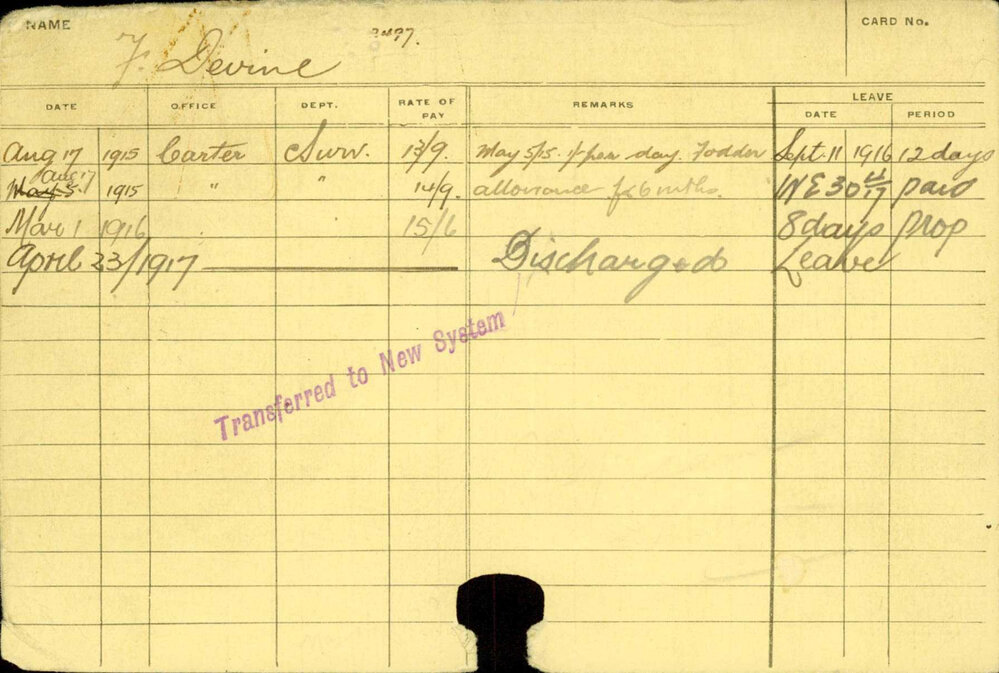 NAME F. Devine 3497. CARD No.
DATE OFFICE DEPT. RATE OF PAY REMARKS LEAVE
DATE PERIOD
Aug 17 1915 Carter Surv. 13/9. May 5/15 1/- per day. Fodder Sept. 11 1916 12 days
Aug 17
May 5. 1915 " " 14/9. allowance for 6 mths. INE 30 4/17 paid
Mar 1 1916 15/6 8 days prop
April 23/1917 Discharged Leave
Transferred to New System